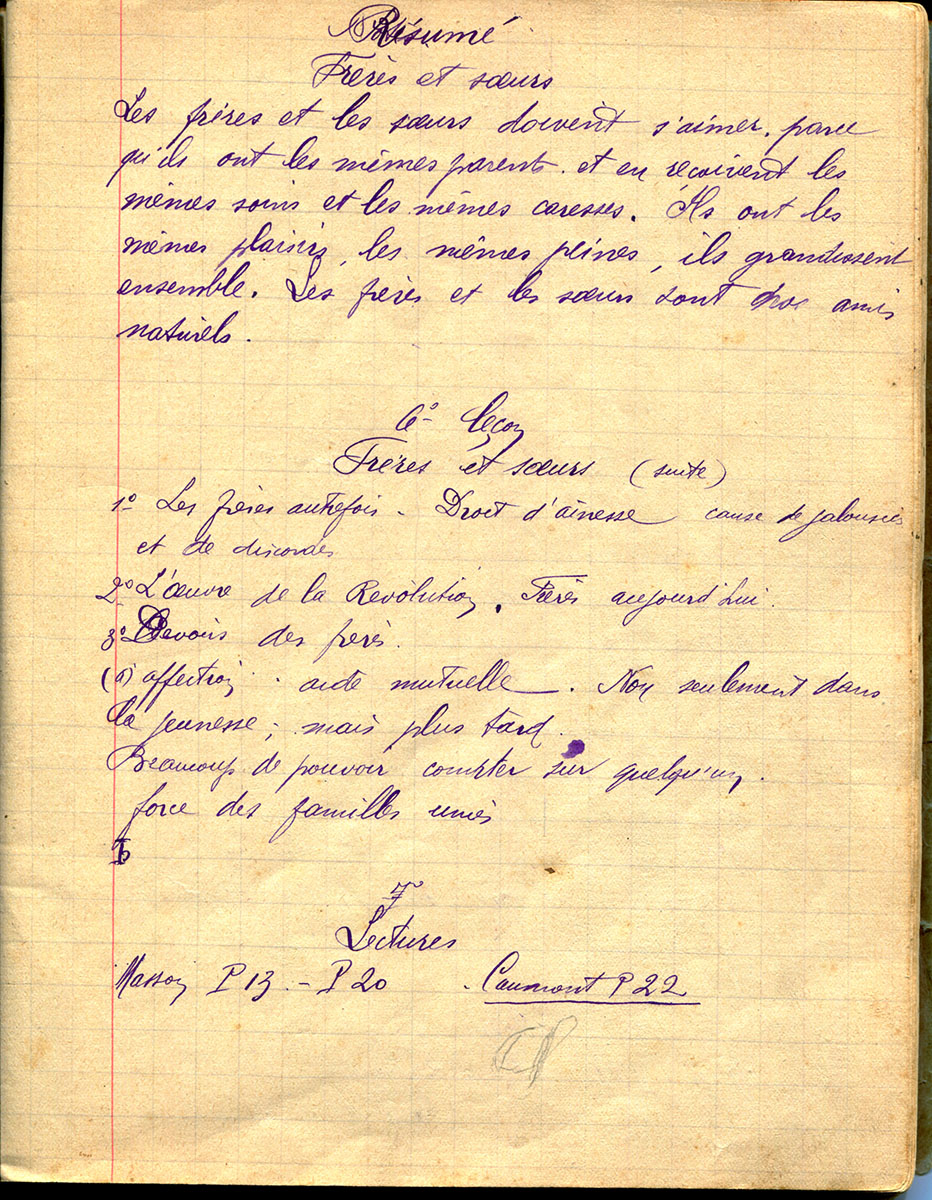 Résumé
Frères et sœurs
Les frères et les sœurs doivent s'aimer, parce
qu'ils ont les mêmes parents et en reçoivent les
mêmes soins et les mêmes caresses. Ils ont les
mêmes plaisirs, les mêmes peines, ils grandissent
ensemble. Les frères et les sœurs sont amis
naturels.
6e Leçon
Frères et sœurs (suite)
1o Les frères autrefois - Droit d'aînesse cause de jalousies
et de discordes
2o L'œuvre de la Révolution. Frères aujourd'hui.
3o Devoirs des frères.
(a) affection. aide mutuelle. Non seulement dans
la jeunesse; mais plus tard.
Beaucoup de pouvoir compter sur quelqu'un.
force des familles unies
7
Lectures
Masson P 13 - P 20 Caumont P 22